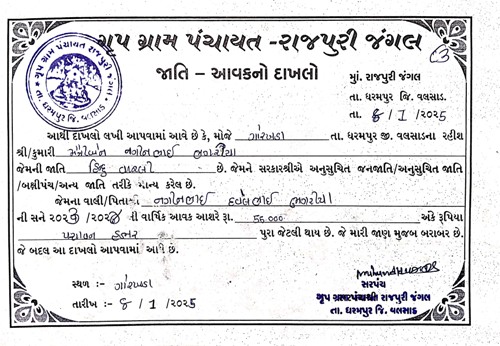 ગ્રુપ ગ્રામ પંચાયત - રાજપુરી જંગલ
જાતિ - આવકનો દાખલો
મું. રાજપુરી જંગલ
તા. ધરમપુર જિ. વલસાડ.
તા. 8/1/2025
આથી દાખલો લખી આપવામાં આવે છે કે, મોજે ગોરખડા તા. ધરમપુર જી. વલસાડના રહીશ
શ્રી/કુમારી નગીનભાઈ
જેમની જાતિ હિન્દુ વારલી છે. જેમને સરકારશ્રીએ અનુસુચિત જનજાતિ/અનુસુચિત જાતિ
/બક્ષીપંચ/અન્ય જાતિ તરીકે માન્ય કરેલ છે.
જેમના વાલી/પિતાશ્રી નગીનભાઈ
ની સને 2023/2024 ની વાર્ષિક આવક આશરે રૂ. 56,000 અંકે રૂપિયા
હજાર પુરા જેટલી થાય છે. જે મારી જાણ મુજબ બરાબર છે.
જે બદલ આ દાખલો આપવામાં આવે છે.
સ્થળ :- ગોરખડા
તારીખ :- 8/1/2025
સરપંચ
ગ્રુપ ગ્રામપંચાયત રાજપુરી જંગલ
તા. ધરમપુર જિ. વલસાડ
ગ્રુપ ગ્રામ પંચાયત રાજપુરી જંગલ
તા. ધરમપુર જિ. વલસાડ